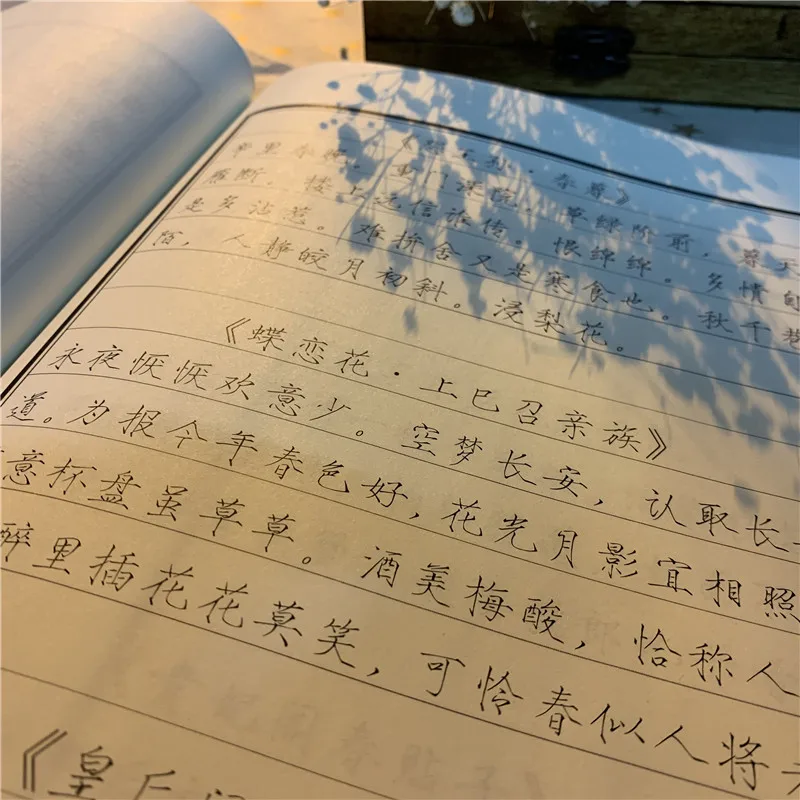 《怨王孙·春暮》
帝里春晚。重门深院。草绿阶前,暮天
雁断。楼上远信谁传。恨绵绵。多情自
是多沾惹。难拚舍又是寒食也。秋千巷
陌,人静皎月初斜。浸梨花。
《蝶恋花·上巳召亲族》
永夜恹恹欢意少。空梦长安,认取长
道。为报今年春色好,花光月影宜相照
意杯盘虽草草。酒美梅酸,恰称人
醉里插花花莫笑,可怜春似人将
《皇后